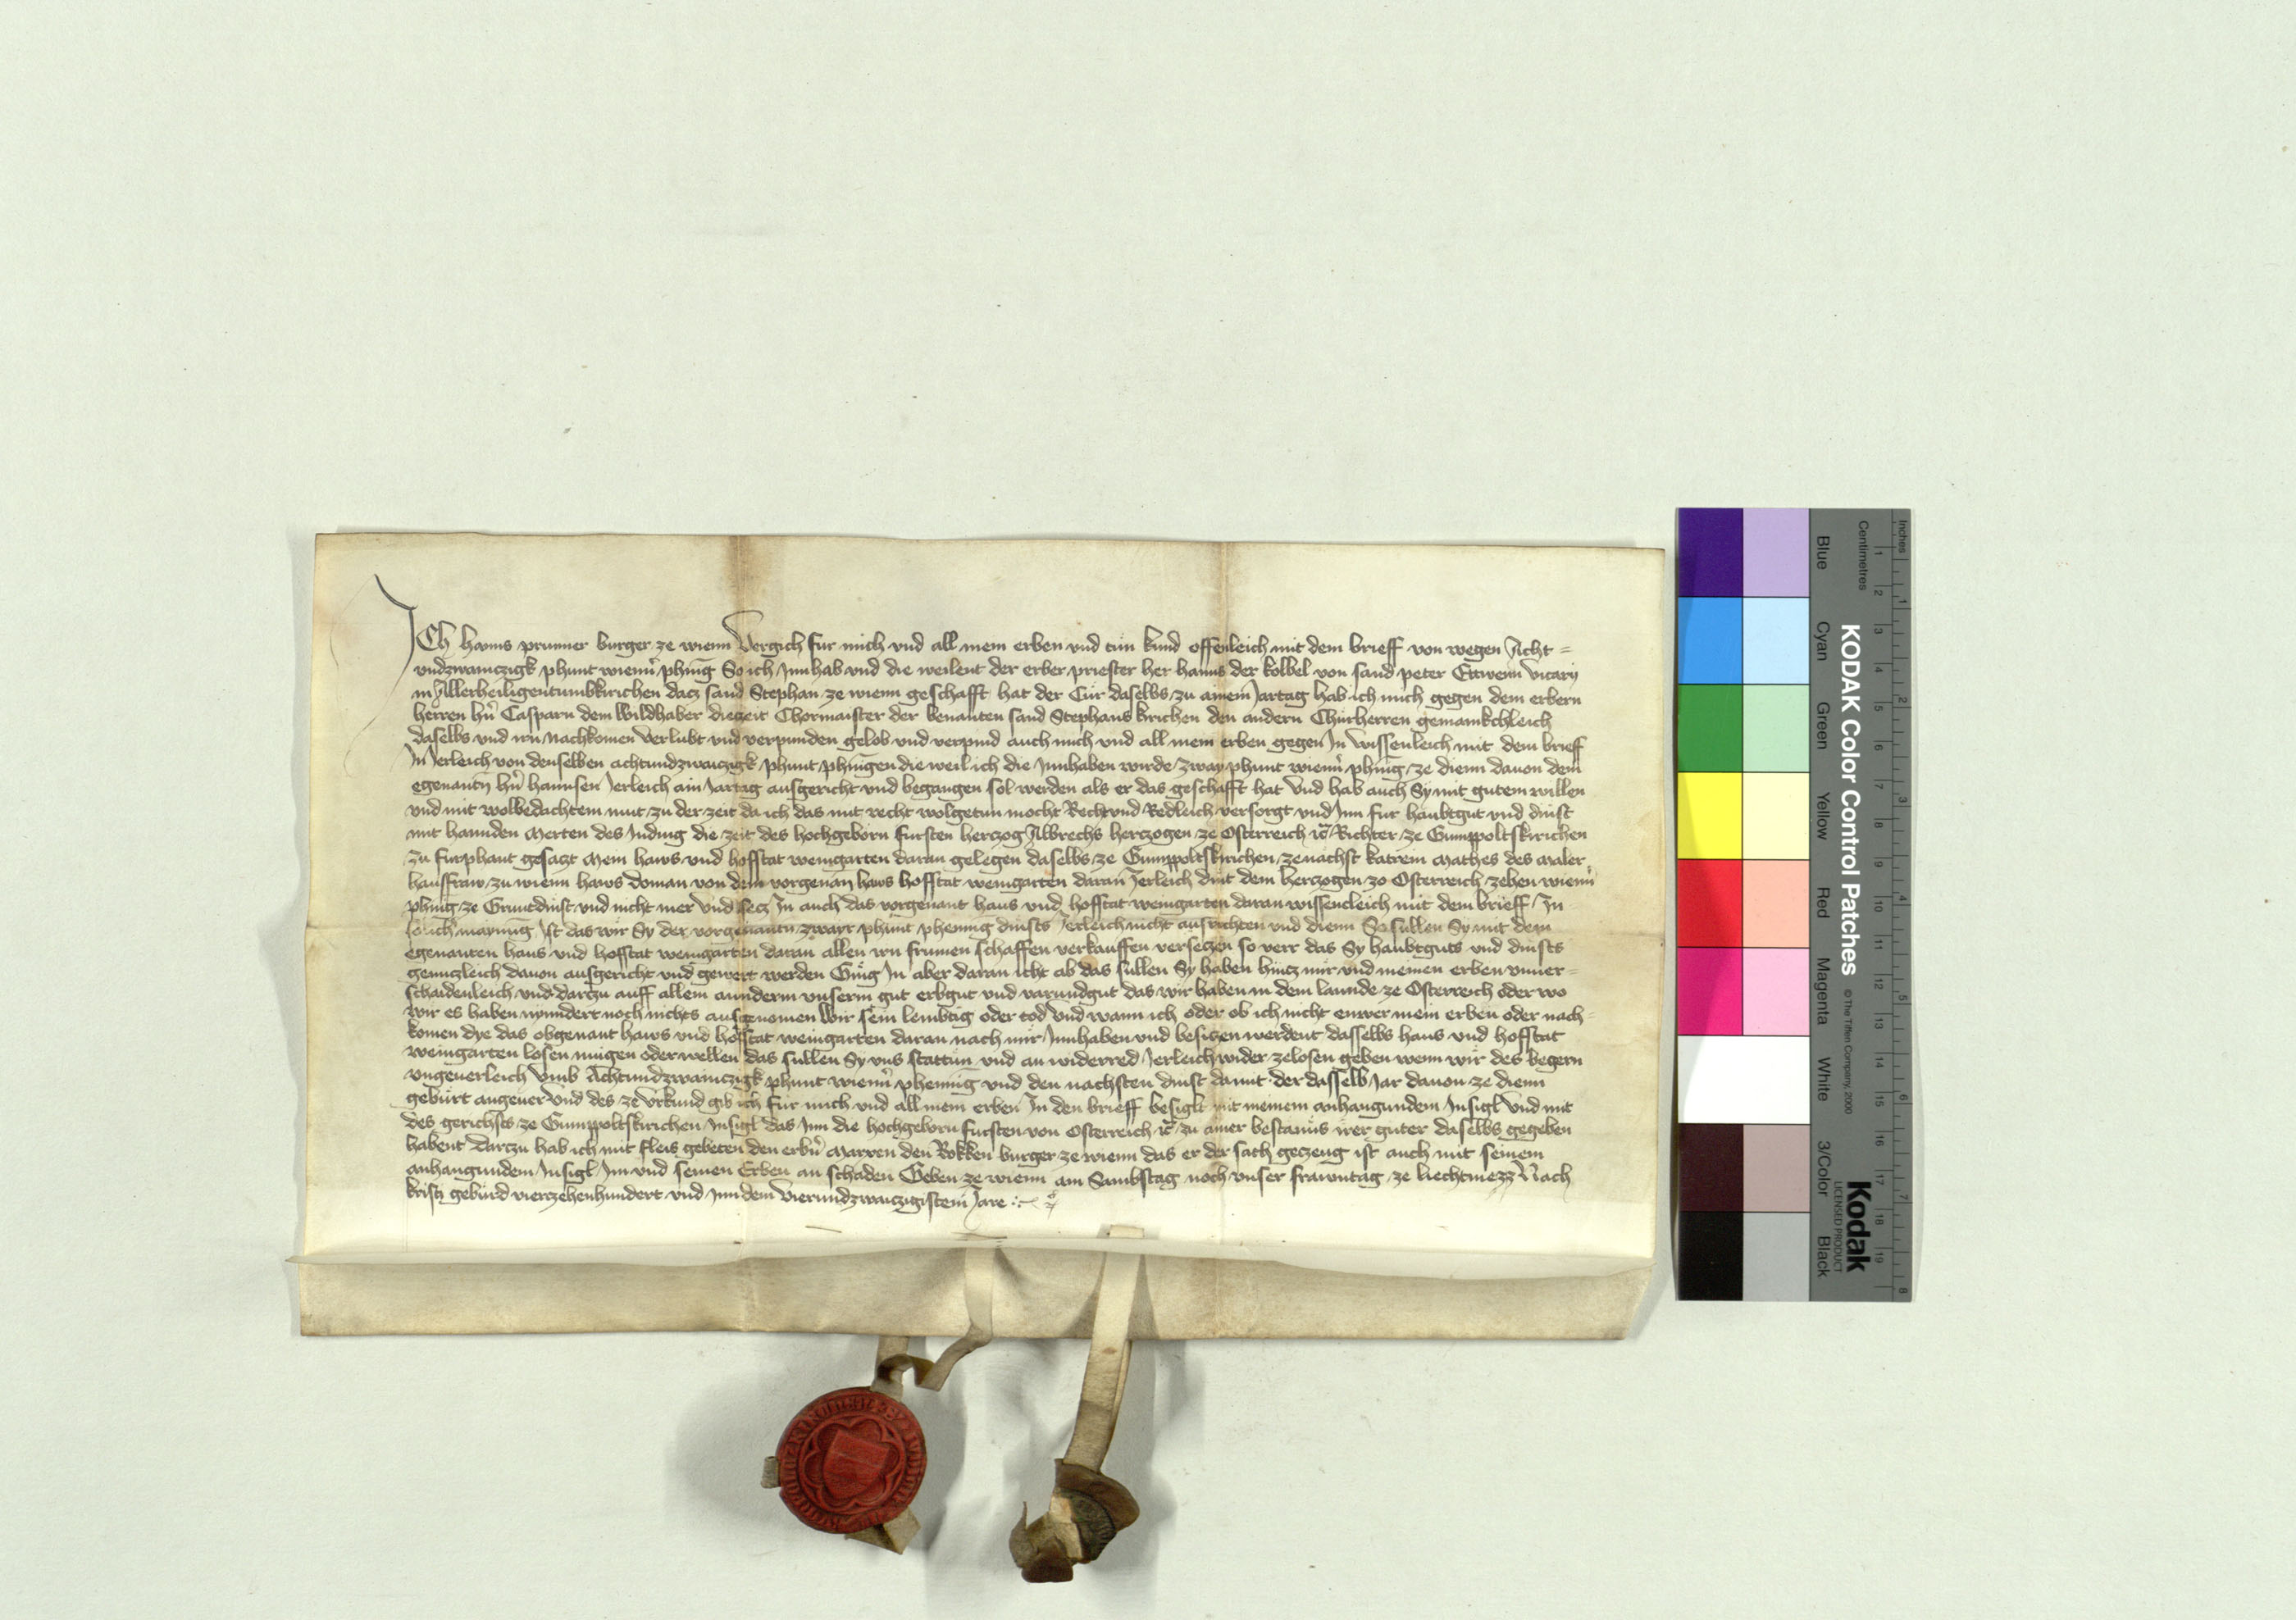 Ich hanns prunner burger ze wienn Vergich fur mich vnd all mein erben vnd tun kund offenleich mit dem brieff von wegen Acht=
undzwainczigk phunt wienner phenig So ich Innhab vnd die weilent der erber priester her hanns der kolbel von sand peter Ettwenn vicary
in Allerheiligentumbkirichen dacz sand Stephan ze wienn geschafft hat der Cur daselbs zu ainem Jartag hab ich mich gegen dem erbern
herren hern Casparn dem Wildhaber diezeit Chormaister der benanten sand Stephans kirichen den andern Churherren gemainkchleich
daselbs vnd irn nachkomen Verlubt vnd verpunden gelob vnd verpind auch mich vnd all mein erben gegen In wissenleich mit dem brieff
In Jerleich von denselben achtundzwaiczigk phunt phenigen die weil ich die Innhaben wirde zway phunt wienner phenig ze dienn dauon dem
egenanten hern hannsen Jerleich ain Jartag ausgericht vnd begangen sol werden als er das geschafft hat Vnd hab auch Sy mit gutem willen
vnd mit wolbedachtem mut zu der zeit da ich das mit recht wolgetun mocht Recht vnd Redleich versorgt vnd Inn fur haubtgut vnd dinst
mit hannden Merten des Juding die zeit des hochgeborn fursten herczog Albrechs herczogen ze Osterreich etc Richter ze Gumppoltskirichen
zu furphant gesaczt Mein haws vnd hofstat weingarten daran gelegen daselbs ze Gumppoltskirichen zenachst katrein Mathes des Maler
hausfraw zu wienn haws doman von dem vorgenan haws hofstat weingarten daran Jerleich dint dem herczogen zo Osterreich zehen wienner
phenig ze Gruntdinst vnd nicht mer Vnd secz In auch das vorgenant haus vnd hofstat weingarten daran wissencleich mit dem brieff In
solich maynung Ist das wir Sy der vorgenanten zwayr phunt phennig dinsts Jerleich nicht ausrichten vnd dienn So sullen Sy mit dem
egenanten haus vnd hofstat weingarten daran allen irn frumen schaffen verkauffen versetzen so verr das Sy haubtguts vnd dinsts
genuczleich dauon ausgericht vnd gewert werden Ging In aber daran icht ab das sullen Sy haben hincz mir vnd meinen erben vnuer=
schaidenleich vnd darczu auff allem annderm vnserm gut erbgut vnd varundgut das wir haben in dem lannde ze Osterreich oder wo
wir es haben nynndert noch nichts ausgenomen Wir sein lembtig oder tod Vnd wann ich oder ob ich nicht enwer mein erben oder nach=
komen dye das obgenant haws vnd hofstat weingarten daran nach mir Innhaben vnd besiczen werdent dasselbs haus vnd hofstat
weingarten losen mugen oder wellen das sullen Sy vns stattun vnd an widerred Jerleich wider zelosen geben wenn wir des begern
vngeuerleich Vmb Achtundzwainczigk phunt wienner phennig vnd den nachsten dinst damit der dasselb Jar dauon ze dienn
geburt angeuer Vnd des ze Vrkund gib ich fur mich vnd all mein erben In den brieff besiglt mit meinem anhangundem Insigl Vnd mit
des gerichsts ze Gumppoltskirichen Insigl das Inn die hochgeborn fursten von Osterreich etc zu ainer bestanus irer guter daselbs gegeben
habent Darczu hab ich mit fleis gebeten den erbern Marxen den Rokken burger ze wienn das er der sach geczeug ist auch mit seinem
anhangundem Insigl Im vnd seinen Erben an schaden Geben ze wienn am Sambstag noch vnser frawntag ze Liechtmezz Nach
kristi geburd vierzehenhundert vnd Inn dem Vierundzwaiczigistem Jare
KODAK Color Control Patches
© The Tiffen Company, 2000
Kodak
LICENSED PRODUCT
Inches
Centimetres
Blue
Cyan
Green
Yellow
Red
Magenta
White
3/Color
Black